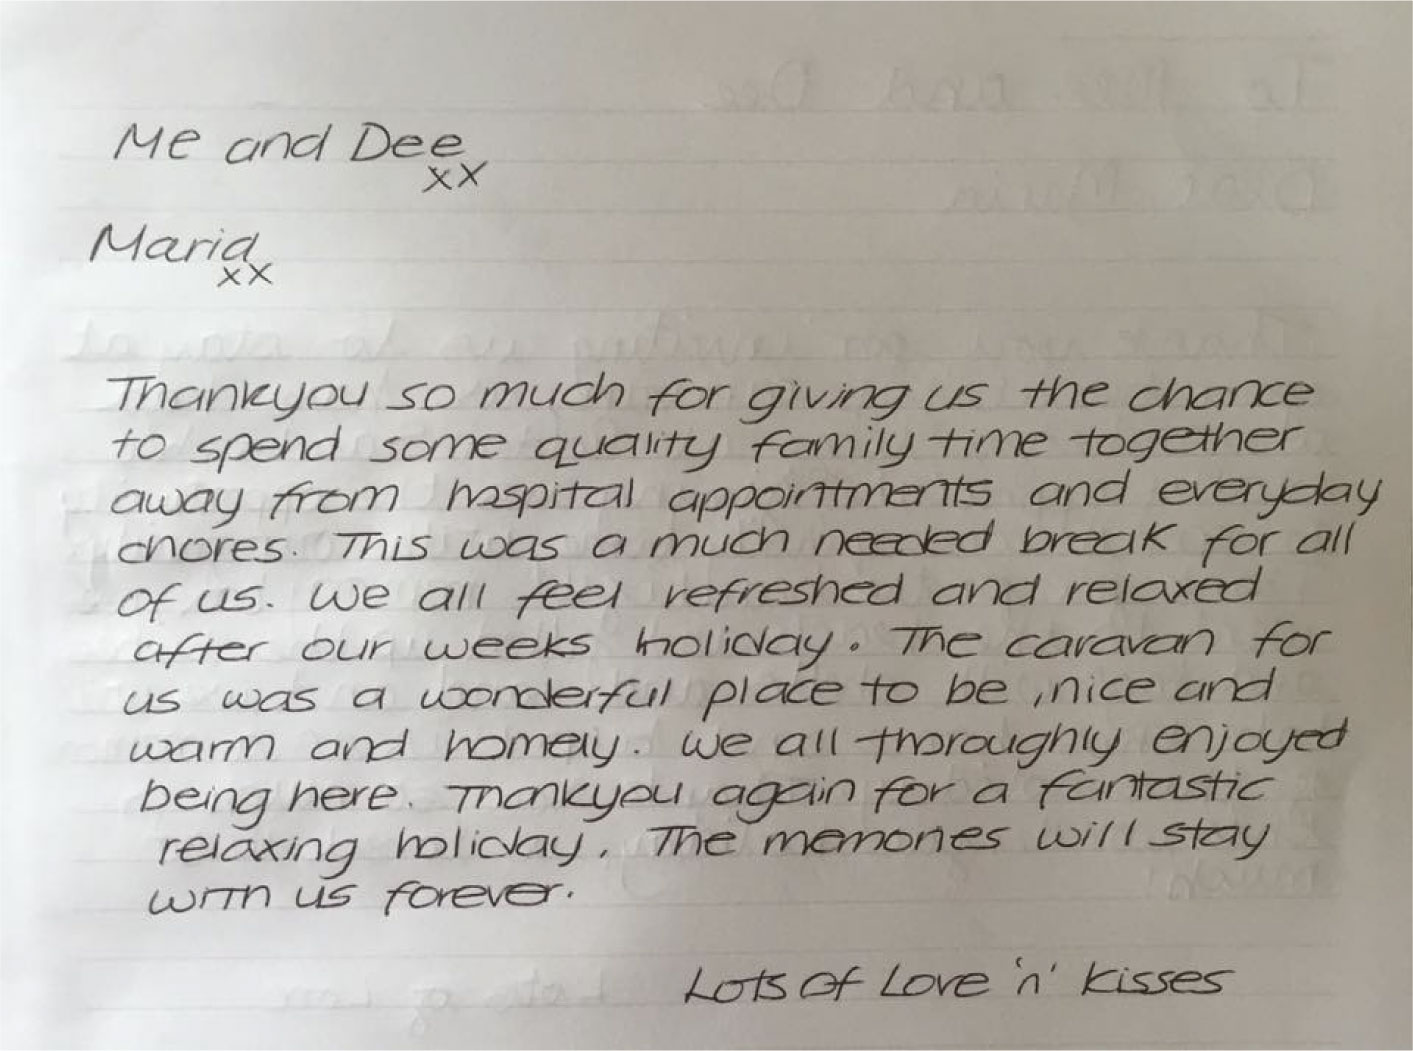 Me and Dee
xx
Maria
xx
Thankyou so much for giving us the chance
to spend some quality family time together
away from hospital appointments and everyday
chores. This was a much needed break for all
of us. We all feel refreshed and relaxed
after our weeks holiday. The caravan for
us was a wonderful place to be, nice and
warm and homely. We all thoroughly enjoyed
being here. Thankyou again for a fantastic
relaxing holiday. The memories will stay
with us forever.
Lots of Love 'n' Kisses